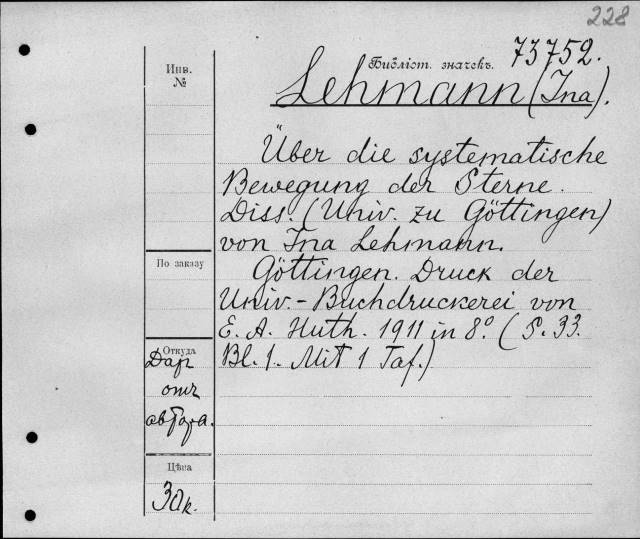 228
Библіот. значекъ. 73752.
Инв.
№
Lehmann (Ina).
Über die systematische
Bewegung der Sterne.
Diss. (Univ. zu Göttingen)
von Ina Lehmann.
По заказу
Göttingen. Druck der
Univ.-Buchdruckerei von
E. A. Huth. 1911 in 8º. (S. 33.
Bl. 1. Mit 1 Taf.)
Откуда
Дар
отъ
автора.
Цѣна
30к.